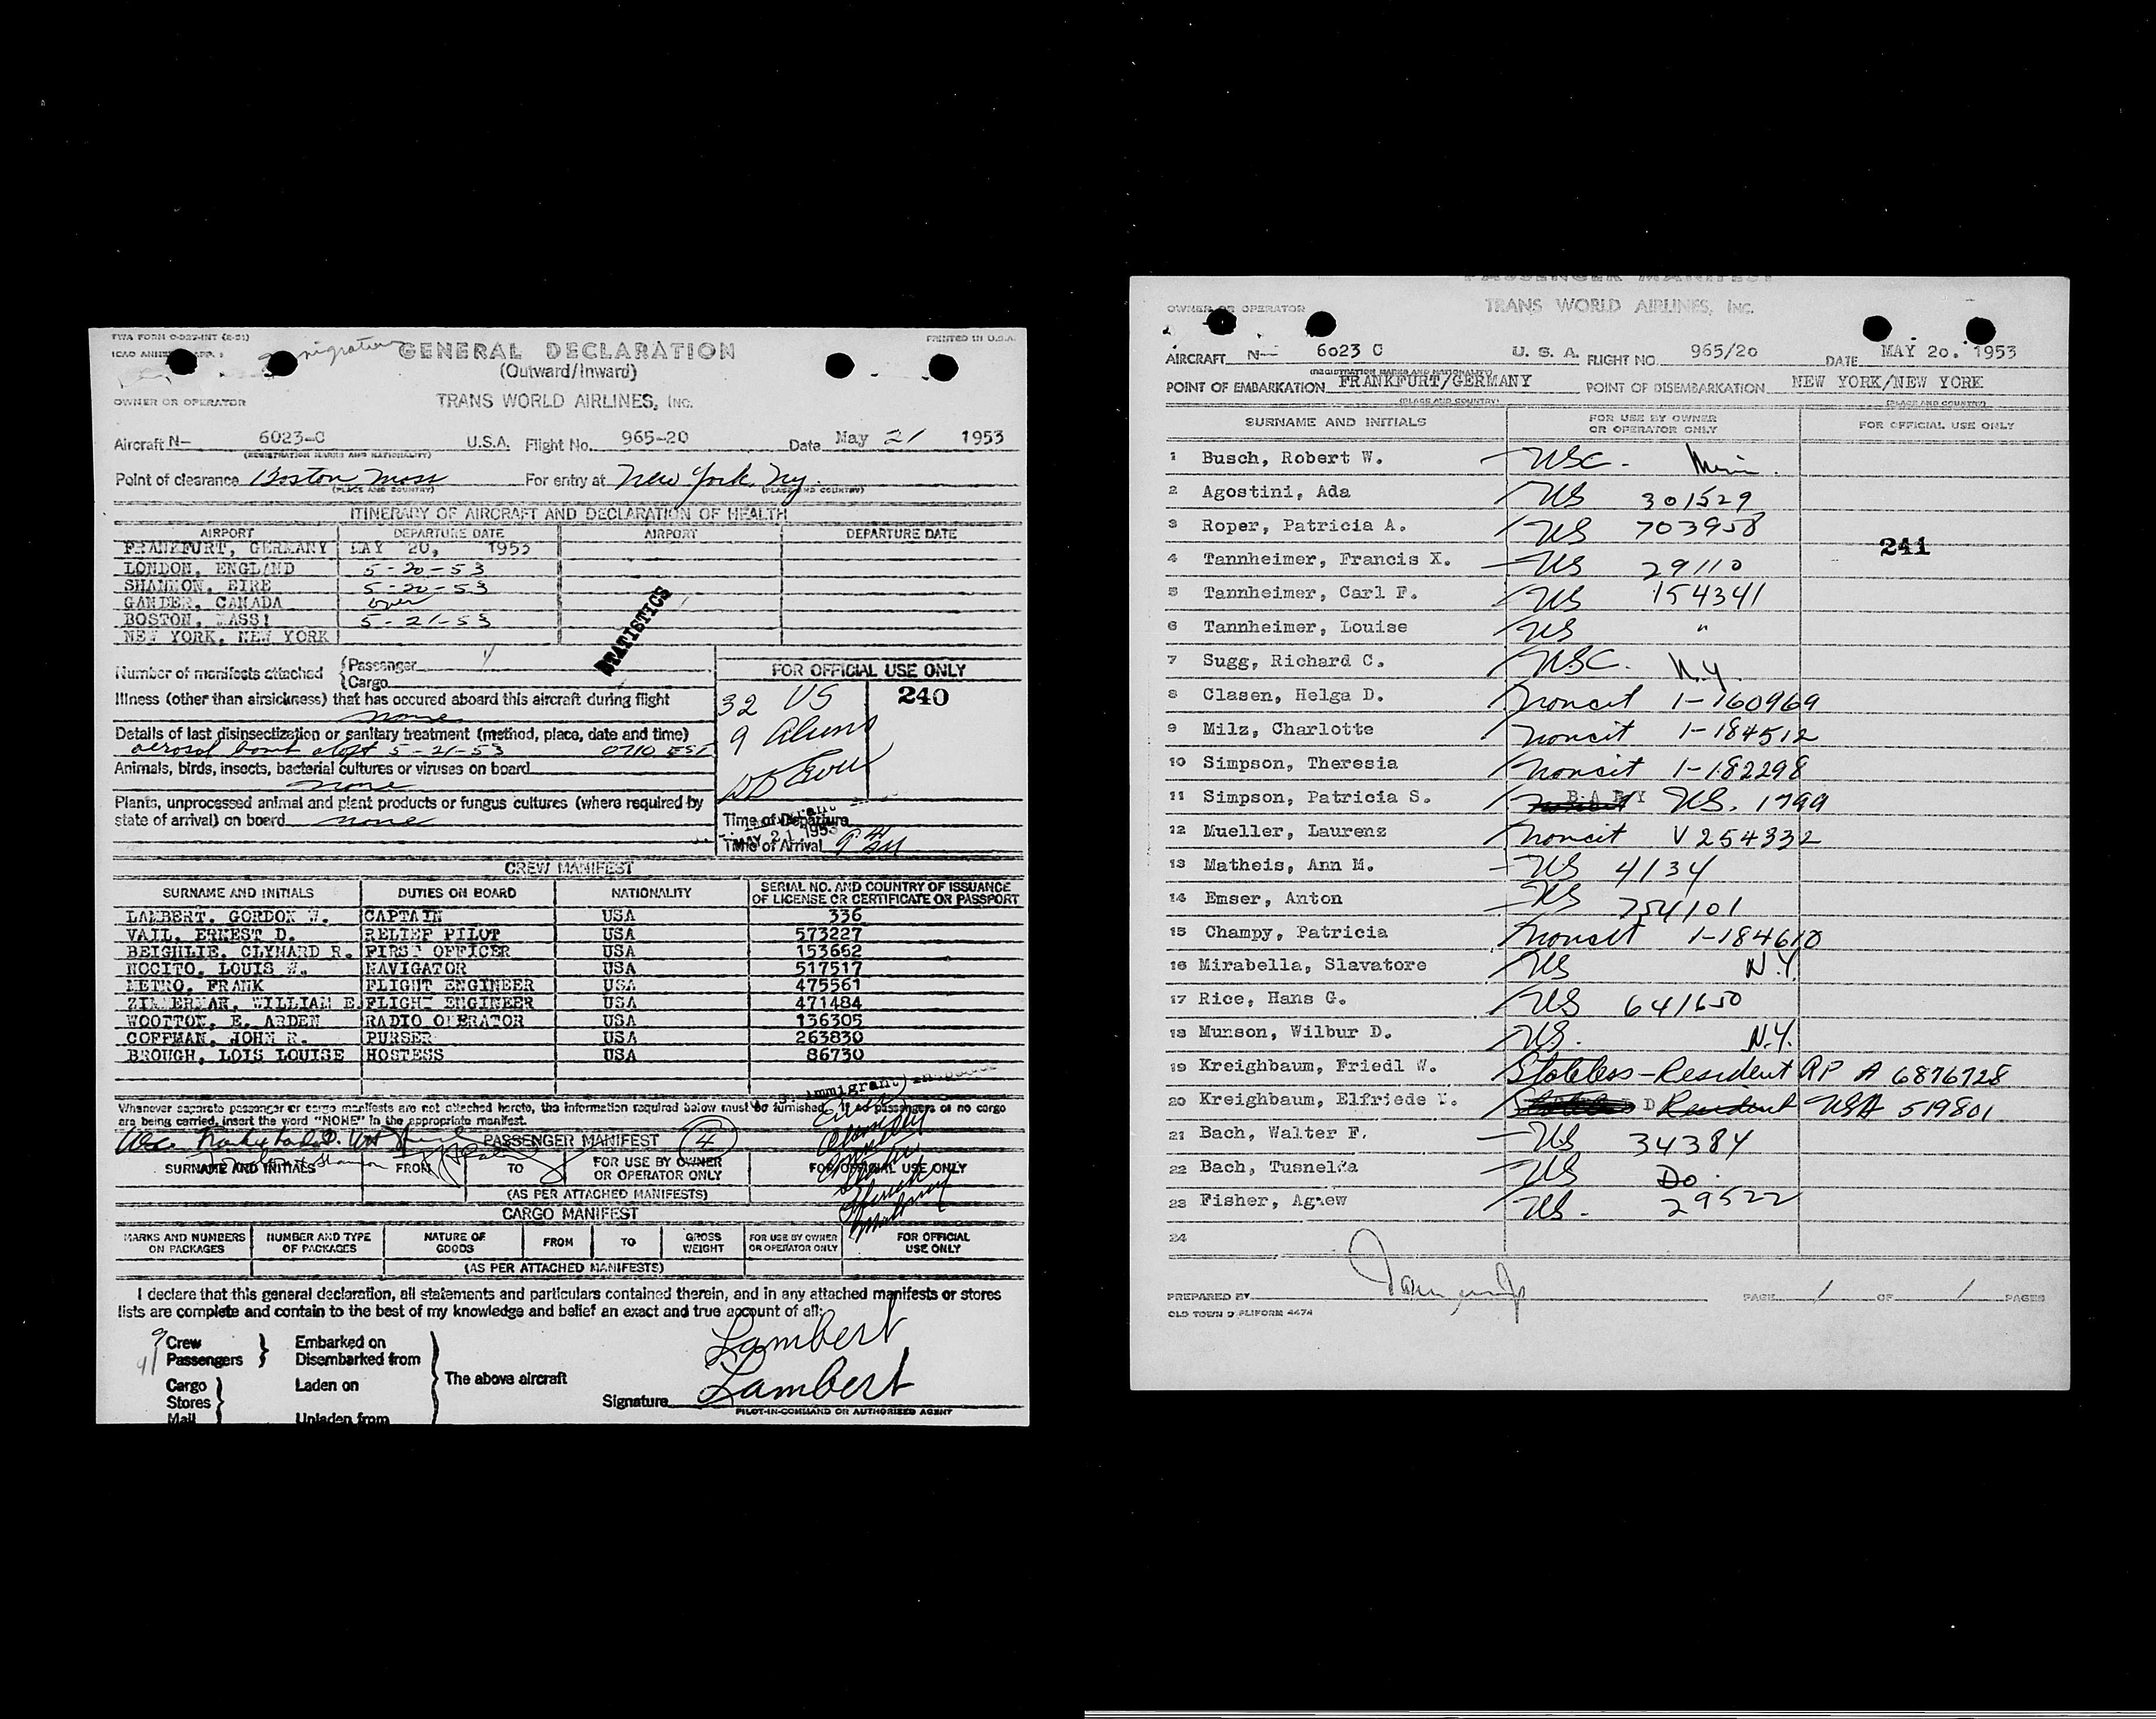 TWA FORM O-027-INT (2-51)
PRINTED IN U.S.A.
GENERAL DECLARATION
(Outward/Inward)
OWNER OR OPERATOR
TRANS WORLD AIRLINES, INC.
Aircraft N- 6023-C U.S.A. Flight No. 965-20 Date May 21 1953
(REGISTRATION MARKS AND NATIONALITY)
Point of clearance Boston Mass For entry at New York, Ny.
(PLACE AND COUNTRY) (PLACE AND COUNTRY)
ITINERARY OF AIRCRAFT AND DECLARATION OF HEALTH
AIRPORT DEPARTURE DATE AIRPORT DEPARTURE DATE
FRANKFURT, GERMANY MAY 20, 1953
LONDON, ENGLAND 5-20-53
SHANNON, EIRE 5-20-53
GANDER, CANADA over
BOSTON, MASS! 5-21-53
NEW YORK, NEW YORK
STATISTICS
Number of manifests attached {Passenger
{Cargo
FOR OFFICIAL USE ONLY
32 US 240
9 Aliens
Illness (other than airsickness) that has occured aboard this aircraft during flight
none
Details of last disinsectization or sanitary treatment (method, place, date and time)
aerosol bomb 5-21-53 0710 EST
Animals, birds, insects, bacterial cultures or viruses on board
none
Plants, unprocessed animal and plant products or fungus cultures (where required by
state of arrival) on board none
Time of Departure
MAY 21 1953
Time of Arrival
CREW MANIFEST
SURNAME AND INITIALS DUTIES ON BOARD NATIONALITY SERIAL NO. AND COUNTRY OF ISSUANCE OF LICENSE OR CERTIFICATE OR PASSPORT
LAMBERT, GORDON W. CAPTAIN USA 336
VAIL, ERNEST D. RELIEF PILOT USA 573227
BEIGHLIE, CLYNARD R. FIRST OFFICER USA 153662
NOCITO, LOUIS W. NAVIGATOR USA 517517
METRO, FRANK FLIGHT ENGINEER USA 475561
ZIMMERMAN, WILLIAM E. FLIGHT ENGINEER USA 471484
WOOTTON, E. ARDEN RADIO OPERATOR USA 136305
COFFMAN, JOHN R. PURSER USA 263830
BROUGH, LOIS LOUISE HOSTESS USA 86730
Whenever separate passenger or cargo manifests are not attached hereto, the information required below must be furnished. If no passengers or no cargo
are being carried, insert the word "NONE" in the appropriate manifest.
PASSENGER MANIFEST 4
SURNAME AND INITIALS FROM TO FOR USE BY OWNER OR OPERATOR ONLY FOR OFFICIAL USE ONLY
(AS PER ATTACHED MANIFESTS)
CARGO MANIFEST
MARKS AND NUMBERS ON PACKAGES NUMBER AND TYPE OF PACKAGES NATURE OF GOODS FROM TO GROSS WEIGHT FOR USE BY OWNER OR OPERATOR ONLY FOR OFFICIAL USE ONLY
(AS PER ATTACHED MANIFESTS)
I declare that this general declaration, all statements and particulars contained therein, and in any attached manifests or stores
lists are complete and contain to the best of my knowledge and belief an exact and true account of all:
9 Crew Embarked on
41 Passengers Disembarked from
Cargo Laden on The above aircraft
Stores
Mail Unladen from
Lambert
Signature Lambert
PILOT-IN-COMMAND OR AUTHORIZED AGENT
PASSENGER MANIFEST
OWNER OR OPERATOR TRANS WORLD AIRLINES, INC.
AIRCRAFT N-- 6023 C U. S. A. FLIGHT NO. 965/20 DATE MAY 20. 1953
(REGISTRATION MARKS AND NATIONALITY)
POINT OF EMBARKATION FRANKFURT/GERMANY POINT OF DISEMBARKATION NEW YORK/NEW YORK
(PLACE AND COUNTRY) (PLACE AND COUNTRY)
SURNAME AND INITIALS FOR USE BY OWNER OR OPERATOR ONLY FOR OFFICIAL USE ONLY
1 Busch, Robert W. USC.
2 Agostini, Ada US 301529
3 Roper, Patricia A. US 703958
241
4 Tannheimer, Francis X. US 29110
5 Tannheimer, Carl F. US 154341
6 Tannheimer, Louise US "
7 Sugg, Richard C. USC. N.Y.
8 Clasen, Helga D. Noncit 1-160969
9 Milz, Charlotte Noncit 1-184512
10 Simpson, Theresia Noncit 1-182298
11 Simpson, Patricia S. BABY US. 1799
12 Mueller, Laurenz Noncit V 254332
13 Matheis, Ann M. US 4134
14 Emser, Anton US 254101
15 Champy, Patricia Noncit 1-184610
16 Mirabella, Slavatore US N.Y.
17 Rice, Hans G. US 641650
18 Munson, Wilbur D. US. N.Y.
19 Kreighbaum, Friedl W. Stateless-Resident RP A 6876728
20 Kreighbaum, Elfriede Resident USA 519801
21 Bach, Walter F. US 34384
22 Bach, Tusnelda US Do
23 Fisher, Agnew US. 29522
24
PREPARED BY PAGE 1 OF 1 PAGES
OLD TOWN D PLIFORM 4474